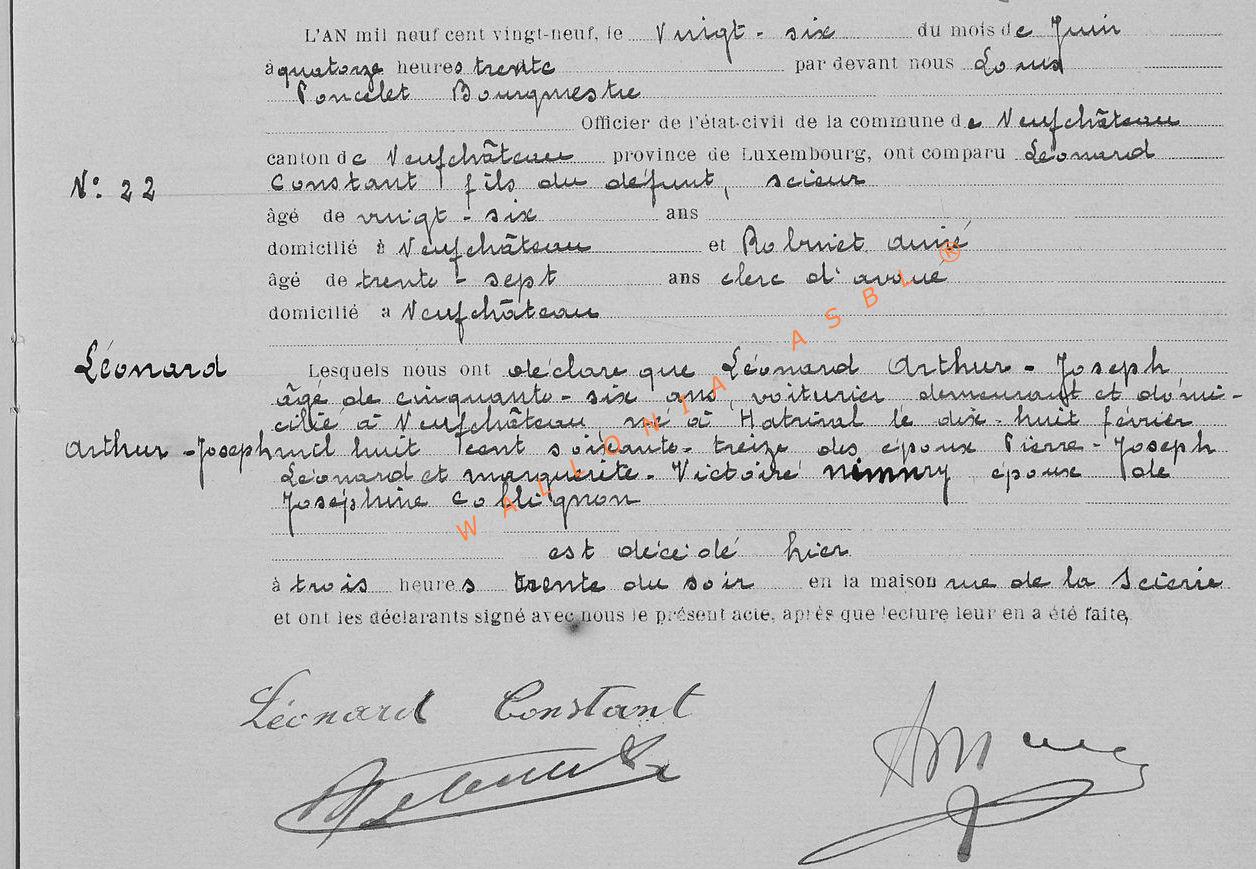 L'AN mil neuf cent vingt-neuf, le vingt-six du mois de Juin
à quatorze heures trente par devant nous Louis
Poncelet Bourgmestre
Officier de l'état-civil de la commune de Neufchâteau
canton de Neufchâteau province de Luxembourg, ont comparu Léonard
N° 22 Constant fils du défunt, scieur
âgé de vingt-six ans
domicilié à Neufchâteau et
âgé de trente-sept ans clerc d'avoué
domicilié à Neufchâteau
Léonard Lesquels nous ont déclaré que Léonard Arthur-Joseph
âgé de cinquante-six ans, voiturier demeurant et domi-
cilié à Neufchâteau, né à Hatrival le dix-huit février
Arthur-Joseph mil huit cent soixante-treize des époux Pierre-Joseph
Léonard et marguerite-Victoire nimmry époux de
Joséphine Collignon
est décédé hier
à trois heures trente du soir en la maison rue de la Scierie
et ont les déclarants signé avec nous le présent acte, après que lecture leur en a été faite,
Léonard Constant
WALLONIA ASBL ®